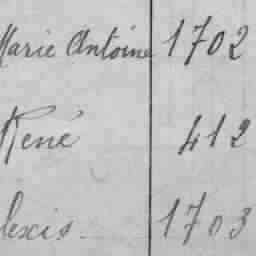 Marie Antoine 1702
René 412
lexis 1703